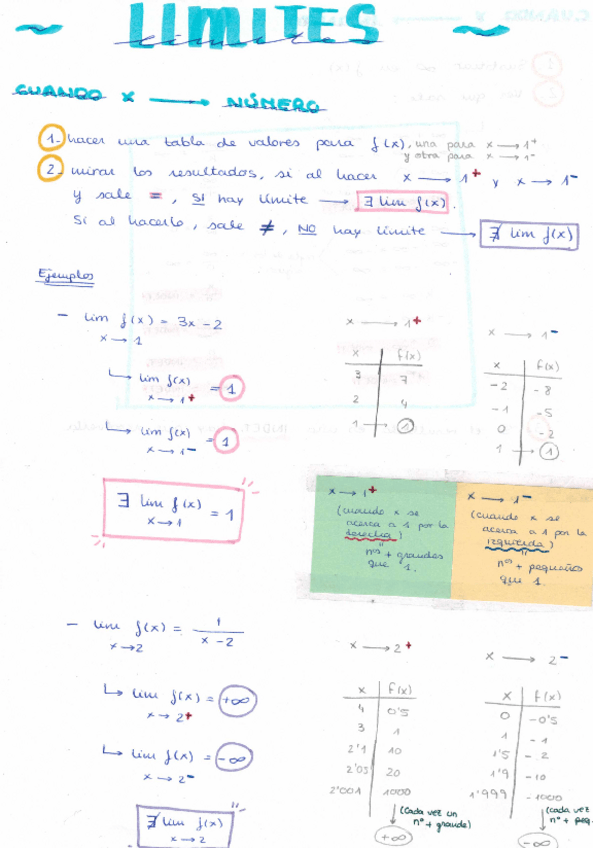 ~ LIMITES ~
límites
CUANDO X ⟶ NÚMERO
1- hacer una tabla de valores para f(x), una para x ⟶ 1⁺
y otra para x ⟶ 1⁻
2- mirar los resultados, si al hacer x ⟶ 1⁺ y x ⟶ 1⁻
y sale =, SI hay límite ⟶ ∃ lim f(x).
Si al hacerlo, sale ≠, NO hay límite ⟶ ∄ lim f(x)
Ejemplos
- lim f(x) = 3x - 2
x → 1
↳ lim f(x) = 1
x → 1⁺
↳ lim f(x) = 1
x → 1⁻
∃ lim f(x) = 1
x → 1
x ⟶ 1⁺
x | f(x)
3 | 7
2 | 4
1 → 1
x ⟶ 1⁻
x | f(x)
-2 | -8
-1 | -5
0 | -2
1 → 1
x → 1⁺
(cuando x se
acerca a 1 por la
derecha)
"
nºs + grandes
que 1.
x → 1⁻
(cuando x se
acerca a 1 por la
izquierda)
"
nºs + pequeños
que 1.
- lim f(x) = 1/(x - 2)
x → 2
↳ lim f(x) = +∞
x → 2⁺
↳ lim f(x) = -∞
x → 2⁻
∄ lim f(x)
x → 2
x ⟶ 2⁺
x | f(x)
4 | 0'5
3 | 1
2'1 | 10
2'05 | 20
2'001 | 1000
(cada vez un
nº + grande)
+∞
x ⟶ 2⁻
x | f(x)
0 | -0'5
1 | -1
1'5 | -2
1'9 | -10
1'999 | -1000
(cada vez
nº + peq
-∞